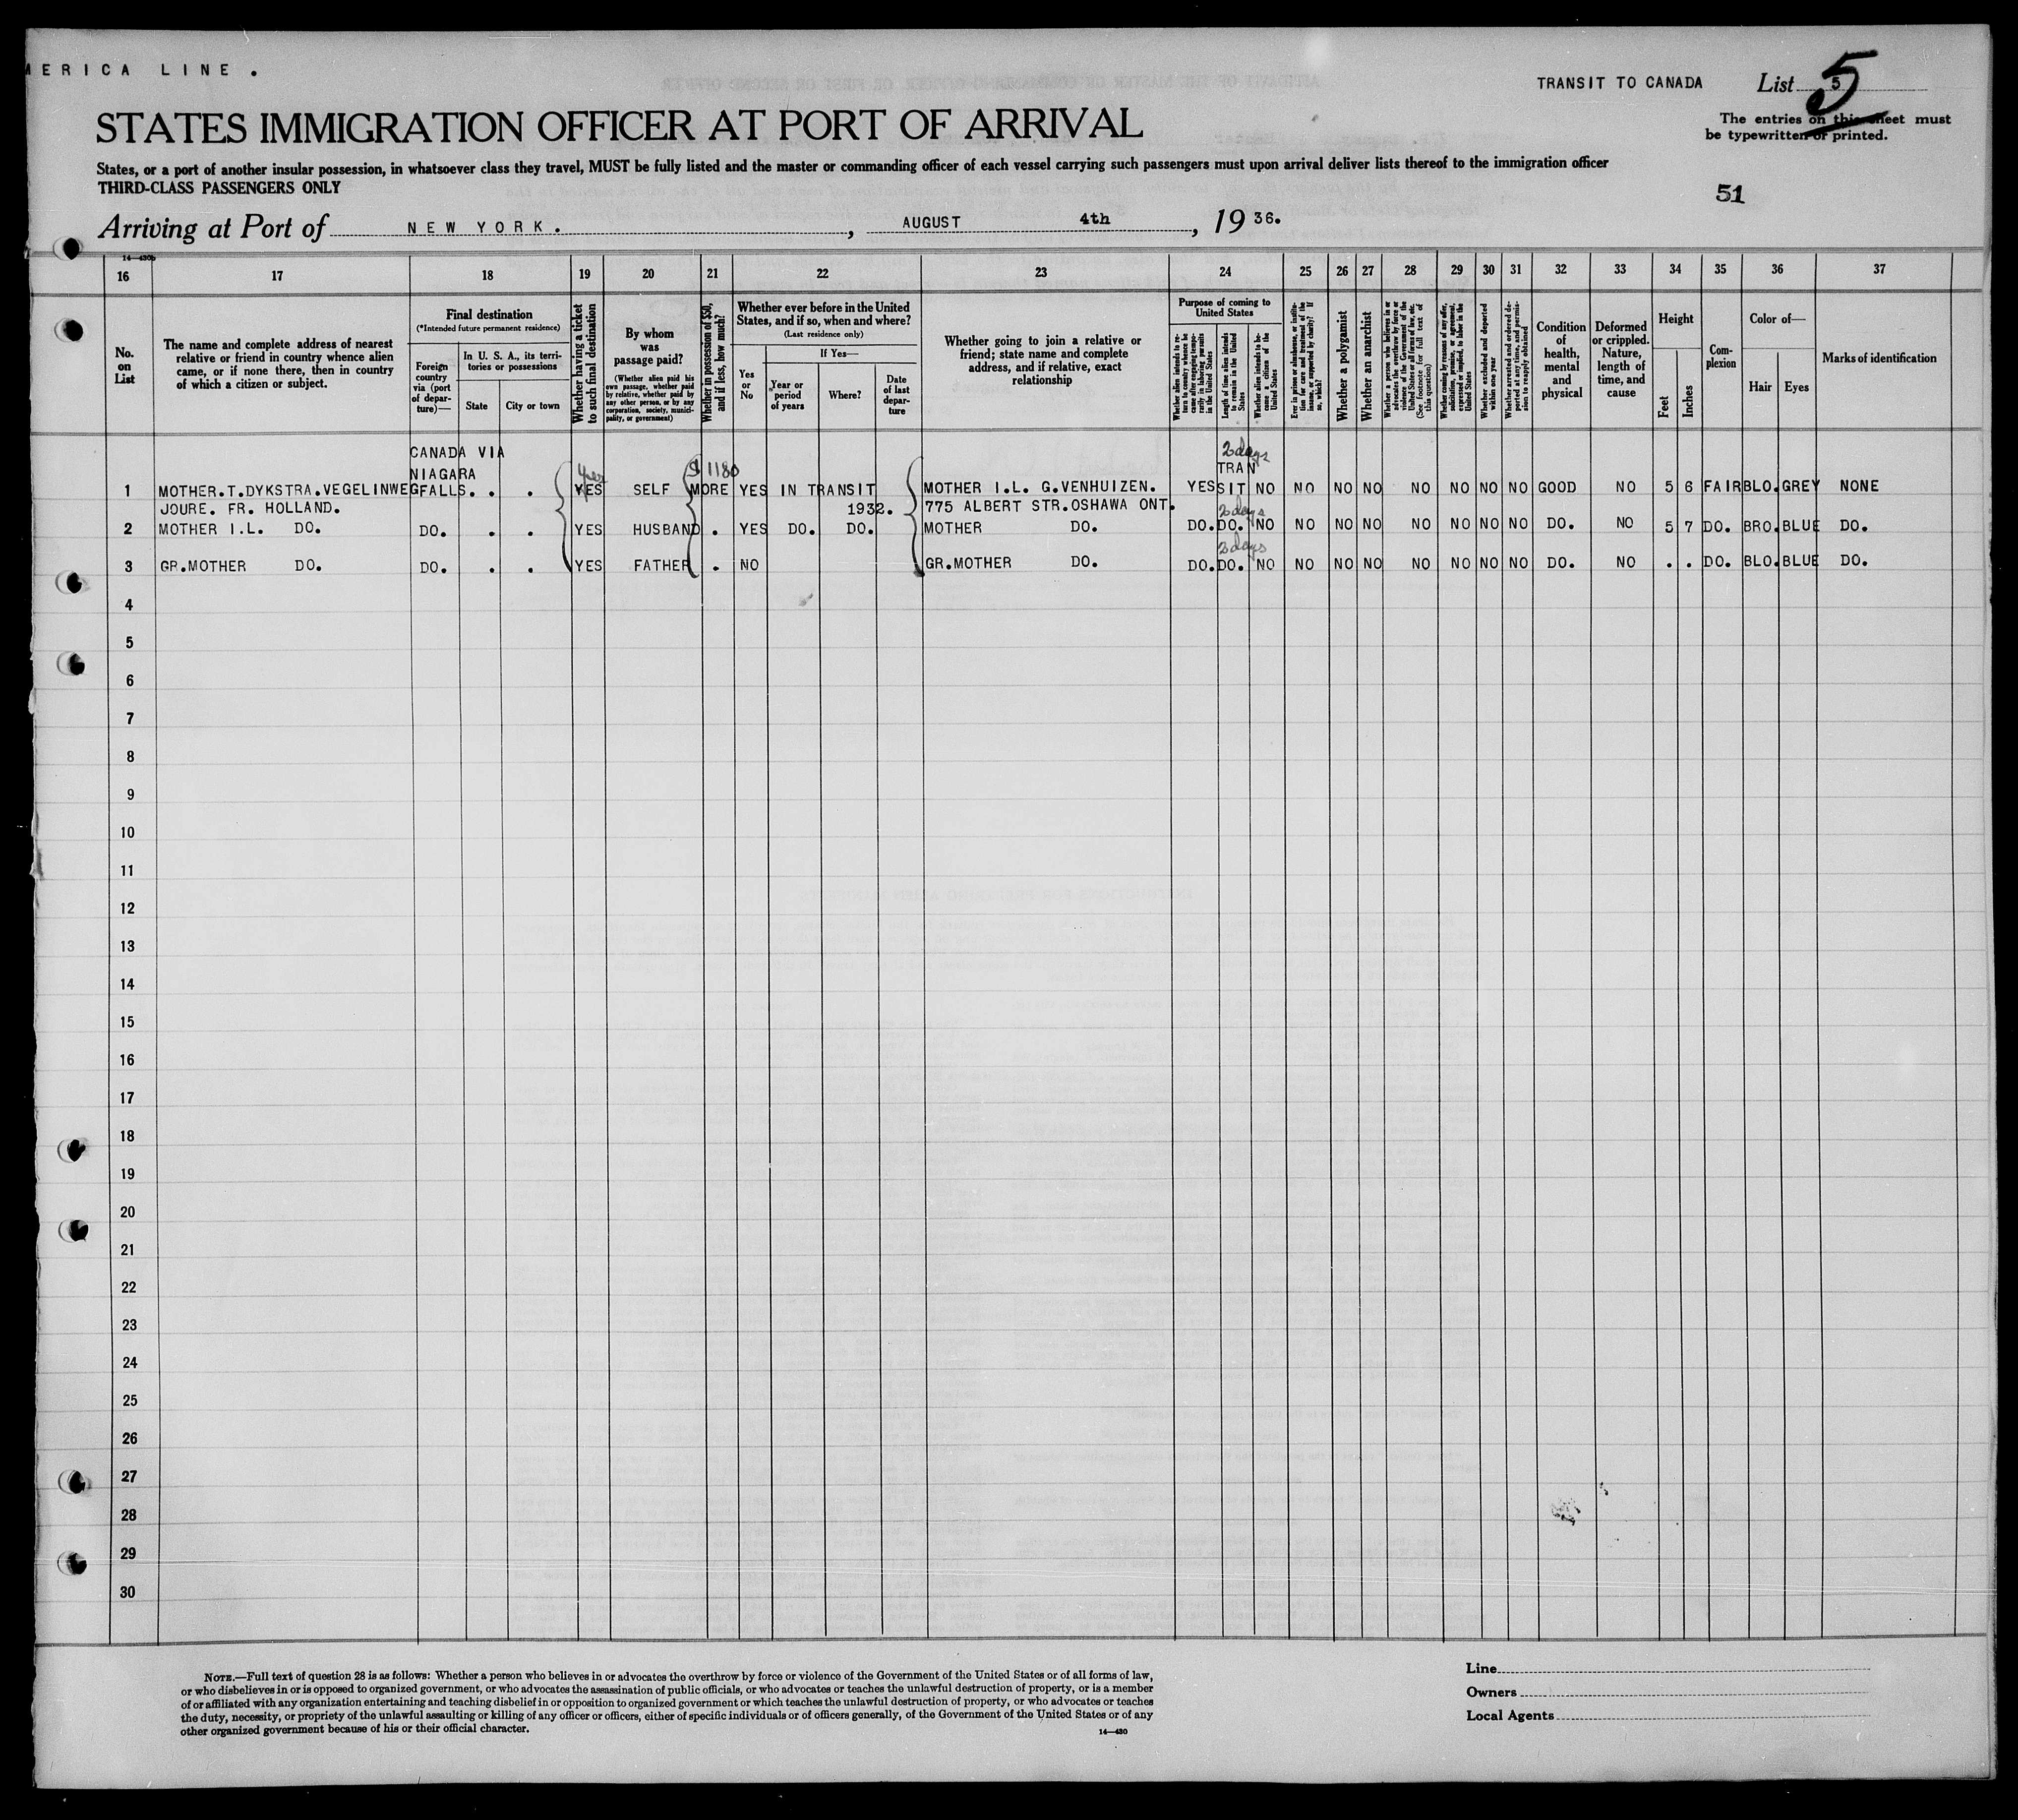 MERICA LINE.
TRANSIT TO CANADA
List 5
5
STATES IMMIGRATION OFFICER AT PORT OF ARRIVAL
The entries on this sheet must
be typewritten or printed.
States, or a port of another insular possession, in whatsoever class they travel, MUST be fully listed and the master or commanding officer of each vessel carrying such passengers must upon arrival deliver lists thereof to the immigration officer
THIRD-CLASS PASSENGERS ONLY
51
Arriving at Port of NEW YORK., AUGUST 4th, 1936.
14—430b
16 17 18 19 20 21 22 23 24 25 26 27 28 29 30 31 32 33 34 35 36 37
No.
on
List
The name and complete address of nearest
relative or friend in country whence alien
came, or if none there, then in country
of which a citizen or subject.
Final destination
(*Intended future permanent residence)
Foreign
country
via (port
of depar-
ture)—
In U. S. A., its terri-
tories or possessions
State
City or town
Whether having a ticket
to such final destination
By whom
was
passage paid?
(Whether alien paid his
own passage, whether paid
by relative, whether paid by
any other person, or by any
corporation, society, munici-
pality, or government)
Whether in possession of $50,
and if less, how much?
Whether ever before in the United
States, and if so, when and where?
(Last residence only)
Yes
or
No
If Yes—
Year or
period
of years
Where?
Date
of last
depar-
ture
Whether going to join a relative or
friend; state name and complete
address, and if relative, exact
relationship
Purpose of coming to
United States
Whether alien intends to re-
turn to country whence he
came after engaging tempo-
rarily in laboring pursuits
in the United States
Length of time alien intends
to remain in the United
States
Whether alien intends to be-
come a citizen of the
United States
Ever in prison or almshouse, or institu-
tion for care and treatment of the
insane, or supported by charity? If
so, which?
Whether a polygamist
Whether an anarchist
Whether a person who believes in or
advocates the overthrow by force or
violence of the Government of the
United States or all forms of law, etc.
(See footnote for full text of
this question)
Whether coming by reasons of any offer,
solicitation, promise, or agreement,
expressed or implied, to labor in the
United States
Whether excluded and deported
within one year
Whether arrested and ordered de-
ported at any time, and permis-
sion to reapply obtained
Condition
of
health,
mental
and
physical
Deformed
or crippled.
Nature,
length of
time, and
cause
Height
Feet
Inches
Com-
plexion
Color of—
Hair
Eyes
Marks of identification
CANADA VIA
2 days
NIAGARA yes $ 1180 TRAN
1 MOTHER.T.DYKSTRA.VEGELINWEG FALLS. . . YES SELF MORE YES IN TRANSIT MOTHER I.L. G.VENHUIZEN. YES SIT NO NO NO NO NO NO NO NO GOOD NO 5 6 FAIR BLO. GREY NONE
JOURE. FR. HOLLAND. 1932. 775 ALBERT STR.OSHAWA ONT. 2 days
2 MOTHER I.L. DO. DO. . . YES HUSBAND . YES DO. DO. MOTHER DO. DO. DO. NO NO NO NO NO NO NO NO DO. NO 5 7 DO. BRO. BLUE DO.
2 days
3 GR.MOTHER DO. DO. . . YES FATHER . NO GR.MOTHER DO. DO. DO. NO NO NO NO NO NO NO NO DO. NO . . DO. BLO. BLUE DO.
4
5
6
7
8
9
10
11
12
13
14
15
16
17
18
19
20
21
22
23
24
25
26
27
28
29
30
NOTE.—Full text of question 28 is as follows: Whether a person who believes in or advocates the overthrow by force or violence of the Government of the United States or of all forms of law,
or who disbelieves in or is opposed to organized government, or who advocates the assassination of public officials, or who advocates or teaches the unlawful destruction of property, or is a member
of or affiliated with any organization entertaining and teaching disbelief in or opposition to organized government or which teaches the unlawful destruction of property, or who advocates or teaches
the duty, necessity, or propriety of the unlawful assaulting or killing of any officer or officers, either of specific individuals or of officers generally, of the Government of the United States or of any
other organized government because of his or their official character.
14—430
Line
Owners
Local Agents